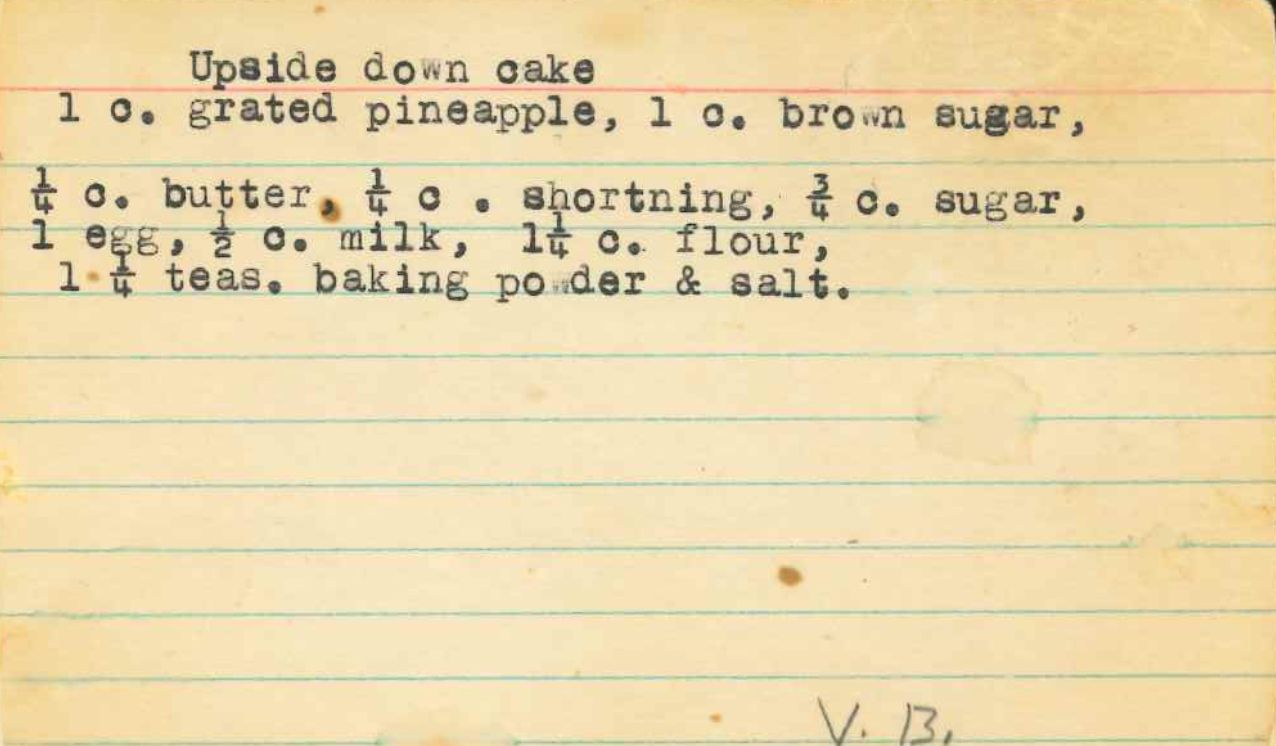 Upside down cake
1 c. grated pineapple, 1 c. brown sugar,
¼ c. butter, ¼ c . shortning, ¾ c. sugar,
1 egg, ½ c. milk, 1¼ c. flour,
1 ¼ teas. baking powder & salt.
V. B.